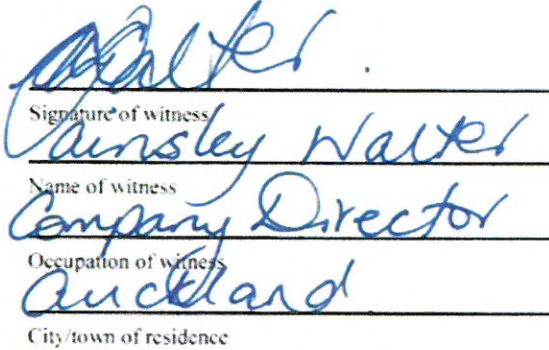 Signature of witness
Ainsley Walter
Name of witness
Company Director
Occupation of witness
Auckland
City/town of residence